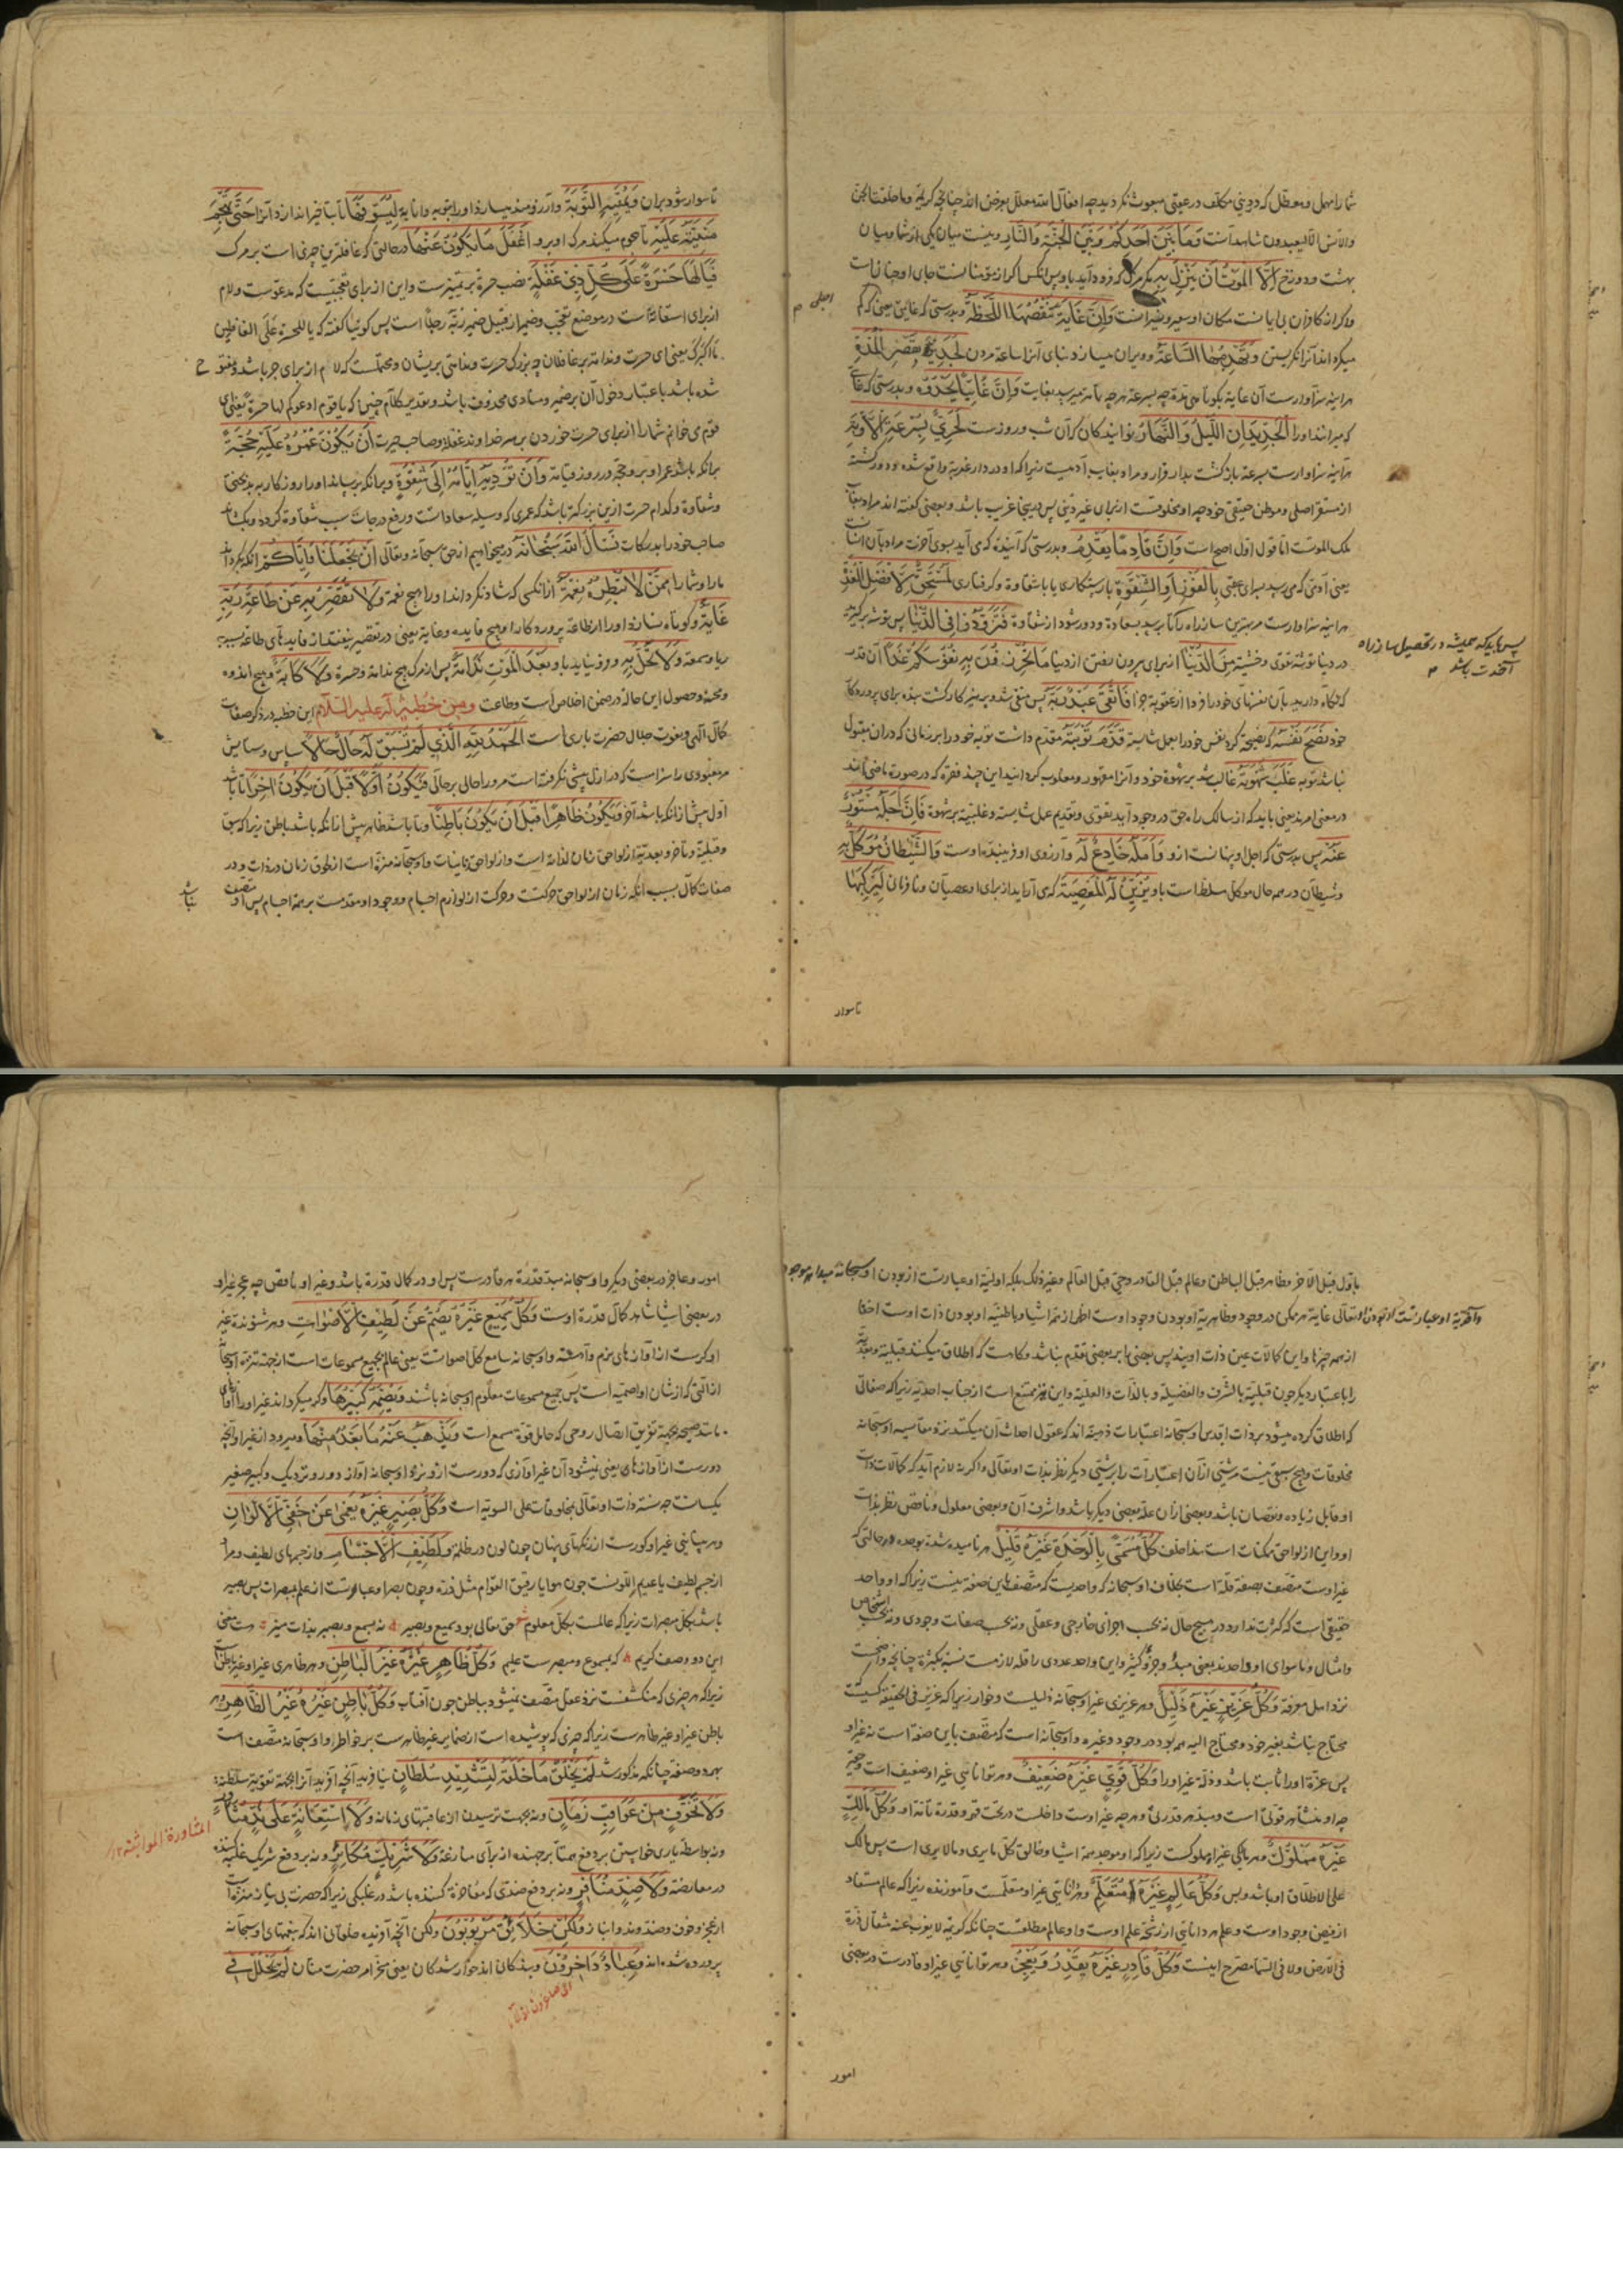 شما را مهمل و معطل که در دنیی مکلف در عقبی مبعوث نگردید چه افعال الله معلل بغرض اند چنانچه کریمه وما خلقت الجن
والانس الا لیعبدون شاهد آنست وَمَا بَيْنَ اَحَدِكُمْ وَبَيْنَ الْجَنَّةِ وَالنَّارِ و نیست میان یکی از شما و میان
بهشت و دوزخ اِلَّا الْمَوْتُ اَنْ يَنْزِلَ بِهِ مگر مرگ که فرود آید باو پس انکس اگر از مؤمنانست جای او جنانست
واگر از کافران بی ایمانست مکان او سعیر و نیرانست وَاِنَّ غَايَةً تَنْقُصُهَا اللَّحْظَةُ و بدرستی که غایتی یعنی که کم
میگرداند آنرا نگریستن وَتَهْدِمُهَا السَّاعَةُ و ویران میسازد بنای آنرا ساعة مردن لَجَدِيرَةٌ بِقِصَرِ الْمُدَّةِ
هر آینه سزاوارست آن غایة بکوتاهی مدة چه بسرعة هرچه تمامتر میرسد بغایت وَاِنَّ غَائِبًا يَحْدُوهُ و بدرستی که غایبی
که میراند او را الْجَدِيدَانِ اللَّيْلُ وَالنَّهَارُ نوآیندگان که آن شب و روزست لَحَرِيٌّ بِسُرْعَةِ الْاَوْبَةِ
هر آینه سزاوارست بسرعة بازگشت بدار قرار و مراد بغایب آدمیست زیرا که او در دار غربة واقع شده و دور گشته
از مستقر اصلی و موطن حقیقی خود چه او مخلوقست از برای غیر دنیی پس در دنیا غریب باشد و بعضی گفته اند مراد بغایب
ملک الموتست اما قول اول اصح است وَاِنَّ قَادِمًا يَقْدُمُ و بدرستی که آینده که می آید بسوی آخرت مراد بآن انسانست
یعنی آدمی که می رسد بسرای عقبی بِالْفَوْزِ اَوِ الشِّقْوَةِ با رستکاری یا با شقاوة و گرفتاری لَمُسْتَحِقٌّ لِاَفْضَلِ الْعُدَّةِ
هر آینه سزاوارست مر بهترین ساز راه را تا برسد بسعادة و دور شود از شقاوة فَتَزَوَّدُوا فِي الدُّنْيَا پس توشه برگیرید
در دنیا توشه تقوی و خشیة مِنَ الدُّنْيَا از برای بیرون رفتن از دنیا مَا تَحْرُزُونَ بِهِ نُفُوسَكُمْ غَدًا آن قدر
که نگاه دارید بآن نفسهای خود را فردا از عقوبة جزا فَاتَّقَى عَبْدٌ رَبَّهُ پس متقی شد و پرهیزکار گشت بنده برای پروردگار
خود نَصَحَ نَفْسَهُ که نصیحة کرد نفس خود را بعمل شایسته قَدَّمَ تَوْبَتَهُ مقدم داشت توبه خود را بر زمانی که در ان مقبول
نباشد توبه غَلَبَ شَهْوَتَهُ غالب شد بر شهوة خود و آنرا مقهور و مغلوب گردانید این چند فقره که در صورة ماضی اند
در معنی امرند یعنی باید که از سالک راه حق در وجود آید تقوی و تقدیم عمل شایسته و غلبه بر شهوة فَاِنَّ اَجَلَهُ مَسْتُورٌ
عَنْهُ پس بدرستی که اجل او پنهانست ازو وَاَمَلَهُ خَادِعٌ لَهُ و آرزوی او فریبنده اوست وَالشَّيْطَانُ مُوَكَّلٌ بِهِ
و شیطان در همه حال موکل مسلط است باو يُزَيِّنُ لَهُ الْمَعْصِيَةَ که می آراید از برای او عصیان و نافرمانی لِيَرْكَبَهَا
تاسوار
اجلی م
پس باید که همیشه در تحصیل ساز راه
آخرت باشد م
تا سوار شود بران وَيُمَنِّيهِ التَّوْبَةَ و آرزومند میسازد او را بتوبه و انابة لِيُسَوِّفَهَا تا بتاخیر اندازد آنرا حَتَّى تَهْجُمَ
مَنِيَّتُهُ عَلَيْهِ تا هجوم میکند مرک او برو اَغْفَلَ مَا يَكُونُ عَنْهَا در حالتی که غافلترین چیزی است بر مرک
فَيَا لَهَا حَسْرَةً عَلَى كُلِّ ذِي غَفْلَةٍ نصب حسرة بر تمییزست و این از برای تعجبست که مدعوست و لام
از برای استغاثه است در موضع تعجب و ضمیر از قبیل ضمیر ربه رجلاً است پس گوییا گفته که یا للحسرة علی الغافلین
ما اکبرک یعنی ای حسرت و ندامة بر غافلان چه بزرگ حسرت و ندامتی بر یشان و محتملست که لام از برای جر باشد و مفتوح
شده باشد باعتبار دخول آن بر ضمیر و منادی محذوف باشد و تقدیر کلام چنین که یا قوم ادعوکم لها حسرة یعنی ای
قوم می خوانم شما را از برای حسرت خوردن بر هر خداوند غفلة و صاحب حیرت اَنْ يَكُونَ عُمُرُهُ عَلَيْهِ حُجَّةً
برانکه باشد عمر او برو حجة در روز قیامة وَاَنْ تُؤَدِّيَهُ اَيَّامُهُ اِلَى شِقْوَةٍ و برانکه برساند او را روزکار به بدبختی
و شقاوة و کدام حسرت ازین بزرگتر باشد که عمری که وسیله سعاداتست و رفع درجات سبب شقاوة گردد و بکشاند
صاحب خود را بدرکات نَسْأَلُ اللهَ سُبْحَانَهُ در میخواهیم از حق سبحانه وتعالی اَنْ يَجْعَلَنَا وَاِيَّاكُمْ انکه بگرداند
ما را و شما را مِمَّنْ لَا تُبْطِرُهُ نِعْمَةٌ از انکسی که شاد نگرداند او را هیچ نعمة وَلَا تُقَصِّرُ بِهِ عَنْ طَاعَةِ رَبِّهِ
غَايَةٌ و کوتاه نسازد او را از طاعة پروردکار او هیچ فایده و غایة یعنی در تقصیر نیفتد از فایدهای طاعة بسبب
ریا و سمعة وَلَا تَحُلُّ بِهِ و فرو نیاید باو بَعْدَ الْمَوْتِ نَدَامَةٌ پس از مرک هیچ ندامة و حسرة وَلَا كَآبَةٌ و هیچ اندوه
و محنة و حصول این حاله در ضمن اخلاص است وطاعت ومِنْ خُطْبَةٍ لَهُ عَلَيْهِ السَّلَامُ این خطبه در ذکر صفات
کمال الهی و نعوت جلال حضرت باری است اَلْحَمْدُ لِلّٰهِ الَّذِي لَمْ تَسْبِقْ لَهُ حَالٌ حَالًا سپاس و ستایش
مر معبودی را سزاست که در ازل پیشی نگرفته است مر او را حالی بر حالی فَيَكُونَ اَوَّلًا قَبْلَ اَنْ يَكُونَ آخِرًا تا باشد
اول پیش از انکه باشد آخر وَيَكُونَ ظَاهِرًا قَبْلَ اَنْ يَكُونَ بَاطِنًا و تا باشد ظاهر پیش از انکه باشد باطن زیرا که سبق
و قبلیة و تاخر و بعدیة از لواحق زمان لذاته است و از لواحق زمانیات و او سبحانه منزه است از لحوق زمان در ذات و در
صفات کمال بسبب انکه زمان از لواحق حرکتست و حرکت از لوازم اجسام و وجود او مقدمست بر همه اجسام پس او متصف
نباشد
باول قبل الآخر و ظاهر قبل الباطن و عالم قبل القادر و حی قبل العالم و غیر ذلک بلکه اولیة او عبارتست از بودن او سبحانه مبداء هر موجود
و آخریة او عبارتست از بودن او تعالی غایة هر ممکن در وجود و ظاهریة او بودن وجود اوست اظهر از همه اشیا و باطنیة او بودن ذات اوست اخفا
از همه چیزها و این کمالات عین ذات اویند پس بعضی را بر بعضی تقدم نباشد و گاهست که اطلاق میکنند قبلیة و بعدیة
را باعتبار دیگر چون قبلیة بالشرف والفضیلة و بالذات والعلیة و این نیز ممتنع است از جناب احدیة زیرا که صفاتی
که اطلاق کرده میشود بر ذات اقدس او سبحانه اعتبارات ذهنیه اند که عقول احداث آن میکنند نزد مقایسه او سبحانه
مخلوقات و هیچ سبقی نیست هر شیئی از آن اعتبارات را بر شیئی دیگر نظر بذات او تعالی و اگر نه لازم آید که کمالات ذات
او قابل زیاده و نقصان باشد و بعضی از آن علة بعضی دیگر باشد و اشرف آن و بعضی معلول و ناقص نظر بذات
او و این از لواحق ممکنات است هذا خلف كُلُّ مُسَمًّى بِالْوَحْدَةِ غَيْرَهُ قَلِيلٌ هر نامیده شده بوحده در حالتی که
غیر اوست متصف بصفة قلة است بخلاف او سبحانه که واحدیست که متصف باین صفة نیست زیرا که او واحد
حقیقی است که کثرت ندارد در هیچ حال نه بحسب اجزای خارجی و عقلی و نه بحسب صفات وجودی و نه بحسب اشخاص
وامثال و ما سوای او واحدند یعنی مبدأ و جزو کثیر و این واحد عددی را قله لازمست نسبة بکثرة چنانچه واضحست
نزد اهل معرفة وَكُلُّ عَزِيزٍ غَيْرَهُ ذَلِيلٌ و هر عزیزی غیر او سبحانه ذلیلست و خوار زیرا که عزیز فی الحقیقه کسیست
محتاج نباشد بغیر خود و محتاج الیه همه بود در وجود و غیره و او سبحانه است که متصف باین صفة است نه غیر او
پس عزة او را ثابت باشد و ذلة غیر او را وَكُلُّ قَوِيٍّ غَيْرَهُ ضَعِيفٌ و هر توانایی غیر او ضعیف است و حقیر
چه او منشأ هر قوتی است و مبدء هر قدرتی و هرچه غیر اوست داخلست در تحت قهر و قدرة تامه او وَكُلُّ مَالِكٍ
غَيْرَهُ مَمْلُوكٌ و هر مالکی غیر او مملوکست زیرا که او موجد همه اشیا و خالق کل ما یری و ما لا یری است پس مالک
علی الاطلاق او باشد و بس وَكُلُّ عَالِمٍ غَيْرَهُ مُتَعَلِّمٌ و هر دانایی غیر او متعلمست و آموزنده زیرا که عالم مستفاد
از فیض وجود اوست و علم هر دانایی از رشحه علم اوست و او عالم مطلقست چنانکه کریمه لا یعزب عنه مثقال ذرة
فی الارض ولا فی السما مصرح اینست وَكُلُّ قَادِرٍ غَيْرَهُ يَقْدِرُ وَيَعْجِزُ و هر توانایی غیر او قادرست در بعضی
امور
امور و عاجز در بعضی دیگر و او سبحانه مبدء قدرة هر قادرست پس او در کمال قدرة باشد و غیر او ناقص چه عجز غیر او
در بعضی اشیا شاهد کمال قدرة اوست وَكُلُّ سَمِيعٍ غَيْرَهُ يَصَمُّ عَنْ لَطِيفِ الْاَصْوَاتِ و هر شنونده غیر
او کرست از آوازهای نرم و آهسته و او سبحانه سامع کل اصواتست یعنی عالم بجمیع مسموعات است از جهة تنزه او سبحانه
از آلتی که از شان او اصمیة است پس جمیع مسموعات معلوم او سبحانه باشند وَيُصِمُّهُ كَبِيرُهَا و کر میگرداند غیر او را آوازهای
مانند صیحه بجهة تفریق اتصال روحی که حامل قوة سمع است وَيَذْهَبُ عَنْهُ مَا بَعُدَ مِنْهَا و میرود از غیر او آنچه
دورست از آوازهای یعنی نمیشنود آن غیر آوازی که دورست ازو نزد او سبحانه آواز دور و نزدیک و کبیر و صغیر
یکسانست چه نسبة ذات او تعالی بمخلوقات علی السویه است وَكُلُّ بَصِيرٍ غَيْرَهُ يَعْمَى عَنْ خَفِيِّ الْاَلْوَانِ
و هر بینایی غیر او کورست از رنگهای پنهان چون لون در ظلمة وَلَطِيفِ الْاَجْسَامِ و از جسمهای لطیف و مراد
از جسم لطیف یا عدیم اللونست چون هوا یا رقیق القوام مثل ذره و چون بصر او عبارتست از علم بمبصرات پس بصیر
باشد بکل مبصرات زیرا که عالمست بکل معلوم شعر حق تعالی بود سمیع و بصیر نه بسمع و ببصر بذات منیر هست معنی
این دو وصف کریم که بمسموع و مبصرست علیم وَكُلُّ ظَاهِرٍ غَيْرَهُ غَيْرُ الْبَاطِنِ و هر ظاهری غیر او غیر باطنست
زیرا که هر چیزی که منکشفست نزد عقل متصف نمیشود بباطن چون آفتاب وَكُلُّ بَاطِنٍ غَيْرَهُ غَيْرُ الظَّاهِرِ و هر
باطن غیر او غیر ظاهرست زیرا که چیزی که پوشیده است از ضمایر غیر ظاهرست بر خواطر و او سبحانه متصف است
بهر دو صفة چنانکه مذکور شد لَمْ يَخْلُقْ مَا خَلَقَهُ لِتَشْدِيدِ سُلْطَانٍ نیافرید آنچه آفرید آنرا بجهة تقویة سلطنة
وَلَا تَخَوُّفٍ مِنْ عَوَاقِبِ زَمَانٍ و نه بجهت ترسیدن از عاقبتهای زمانه وَلَا اسْتِعَانَةٍ عَلَى نِدٍّ مُثَاوِرٍ
و نه بواسطه یاری خواستن بر دفع همتا بر جهنده از برای منازعة وَلَا شَرِيكٍ مُكَاثِرٍ و نه بر دفع شریک غلبه کننده
در معارضة وَلَا ضِدٍّ مُنَافِرٍ و نه بر دفع ضدی که مفاخرة کننده باشد در غلبکی زیرا که حضرت بی نیاز منزه است
از عجز و خوف و ضد و ند و انباز وَلٰكِنْ خَلَائِقُ مَرْبُوبُونَ ولکن آنچه آفریده مخلوقانی اند که بنعمتهای او سبحانه
پرورده شده اند وَعِبَادٌ دَاخِرُونَ و بندگان اند خوار شدگان یعنی مسخر امر حضرت منان لَمْ يَحْلُلْ فِي
المثاورة المواثبة ١٢